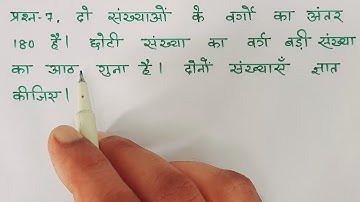 प्रश्न-7. दो संख्याओं के वर्गों का अंतर
180 है। छोटी संख्या का वर्ग बड़ी संख्या
का आठ गुना है। दोनों संख्याएँ ज्ञात
कीजिए।